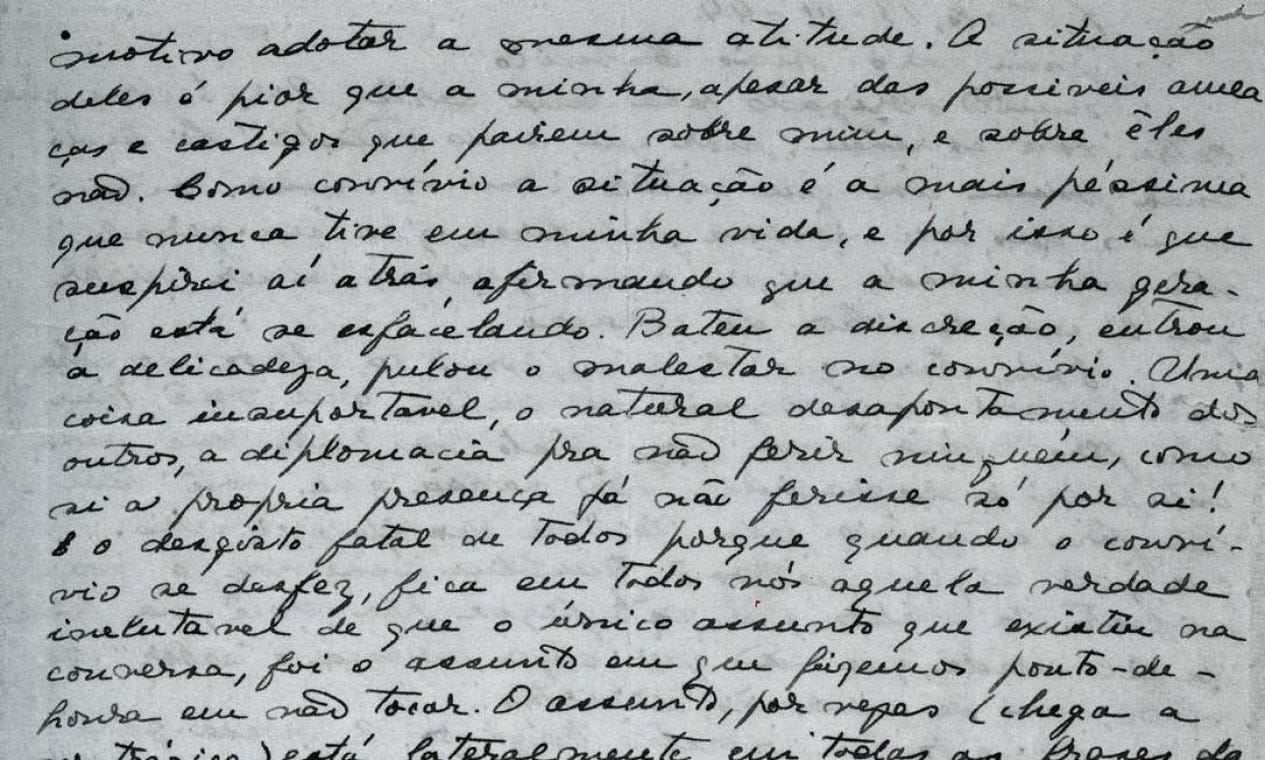 motivo adotar a mesma atitude. A situação
deles é pior que a minha, apesar das possiveis amea
ças e castigos que pairem sobre mim, e sobre êles
não. Como convívio a situação é a mais péssima
que nunca tive em minha vida, e por isso é que
suspirei aí atrás, afirmando que a minha gera-
ção está se esfacelando. Bateu a discreção, entrou
a delicadeza, pulou o malestar no convívio. Uma
coisa insuportavel, o natural desapontamento dos
outros, a diplomacia pra não ferir ninguém, como
si a propria presença já não ferisse só por si!
E o desgôsto fatal de todos porque quando o conví-
vio se desfez, fica em todos nós aquela verdade
inelutavel de que o único assunto que existiu na
conversa, foi o assunto em que fizemos ponto-de-
honra em não tocar. O assunto, por vezes (chega a
ser trágico) está lateralmente em todas as frases da